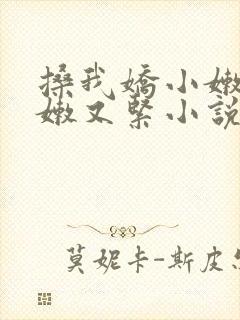 搡我嬌小嫩
嫩又緊小說
莫妮卡-斯皮